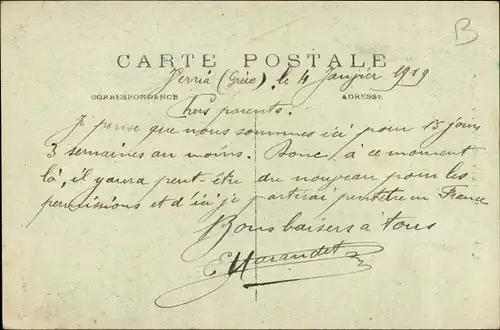 B
CARTE POSTALE
Verria (Grèce), le 4 Janvier 1919
CORRESPONDANCE
ADRESSE
Chers parents.
Je pense que nous sommes ici pour 15 jours
3 semaines au moins. Donc, à ce moment
là, il y aura peut-être du nouveau pour les
permissions et d'ici je partirai peut être en France
Bons baisers à tous
E Marandet